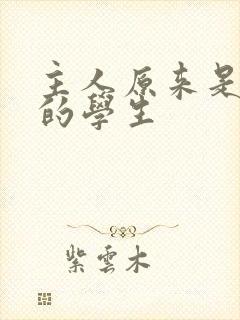 主人原来是
的學生
紫雲木